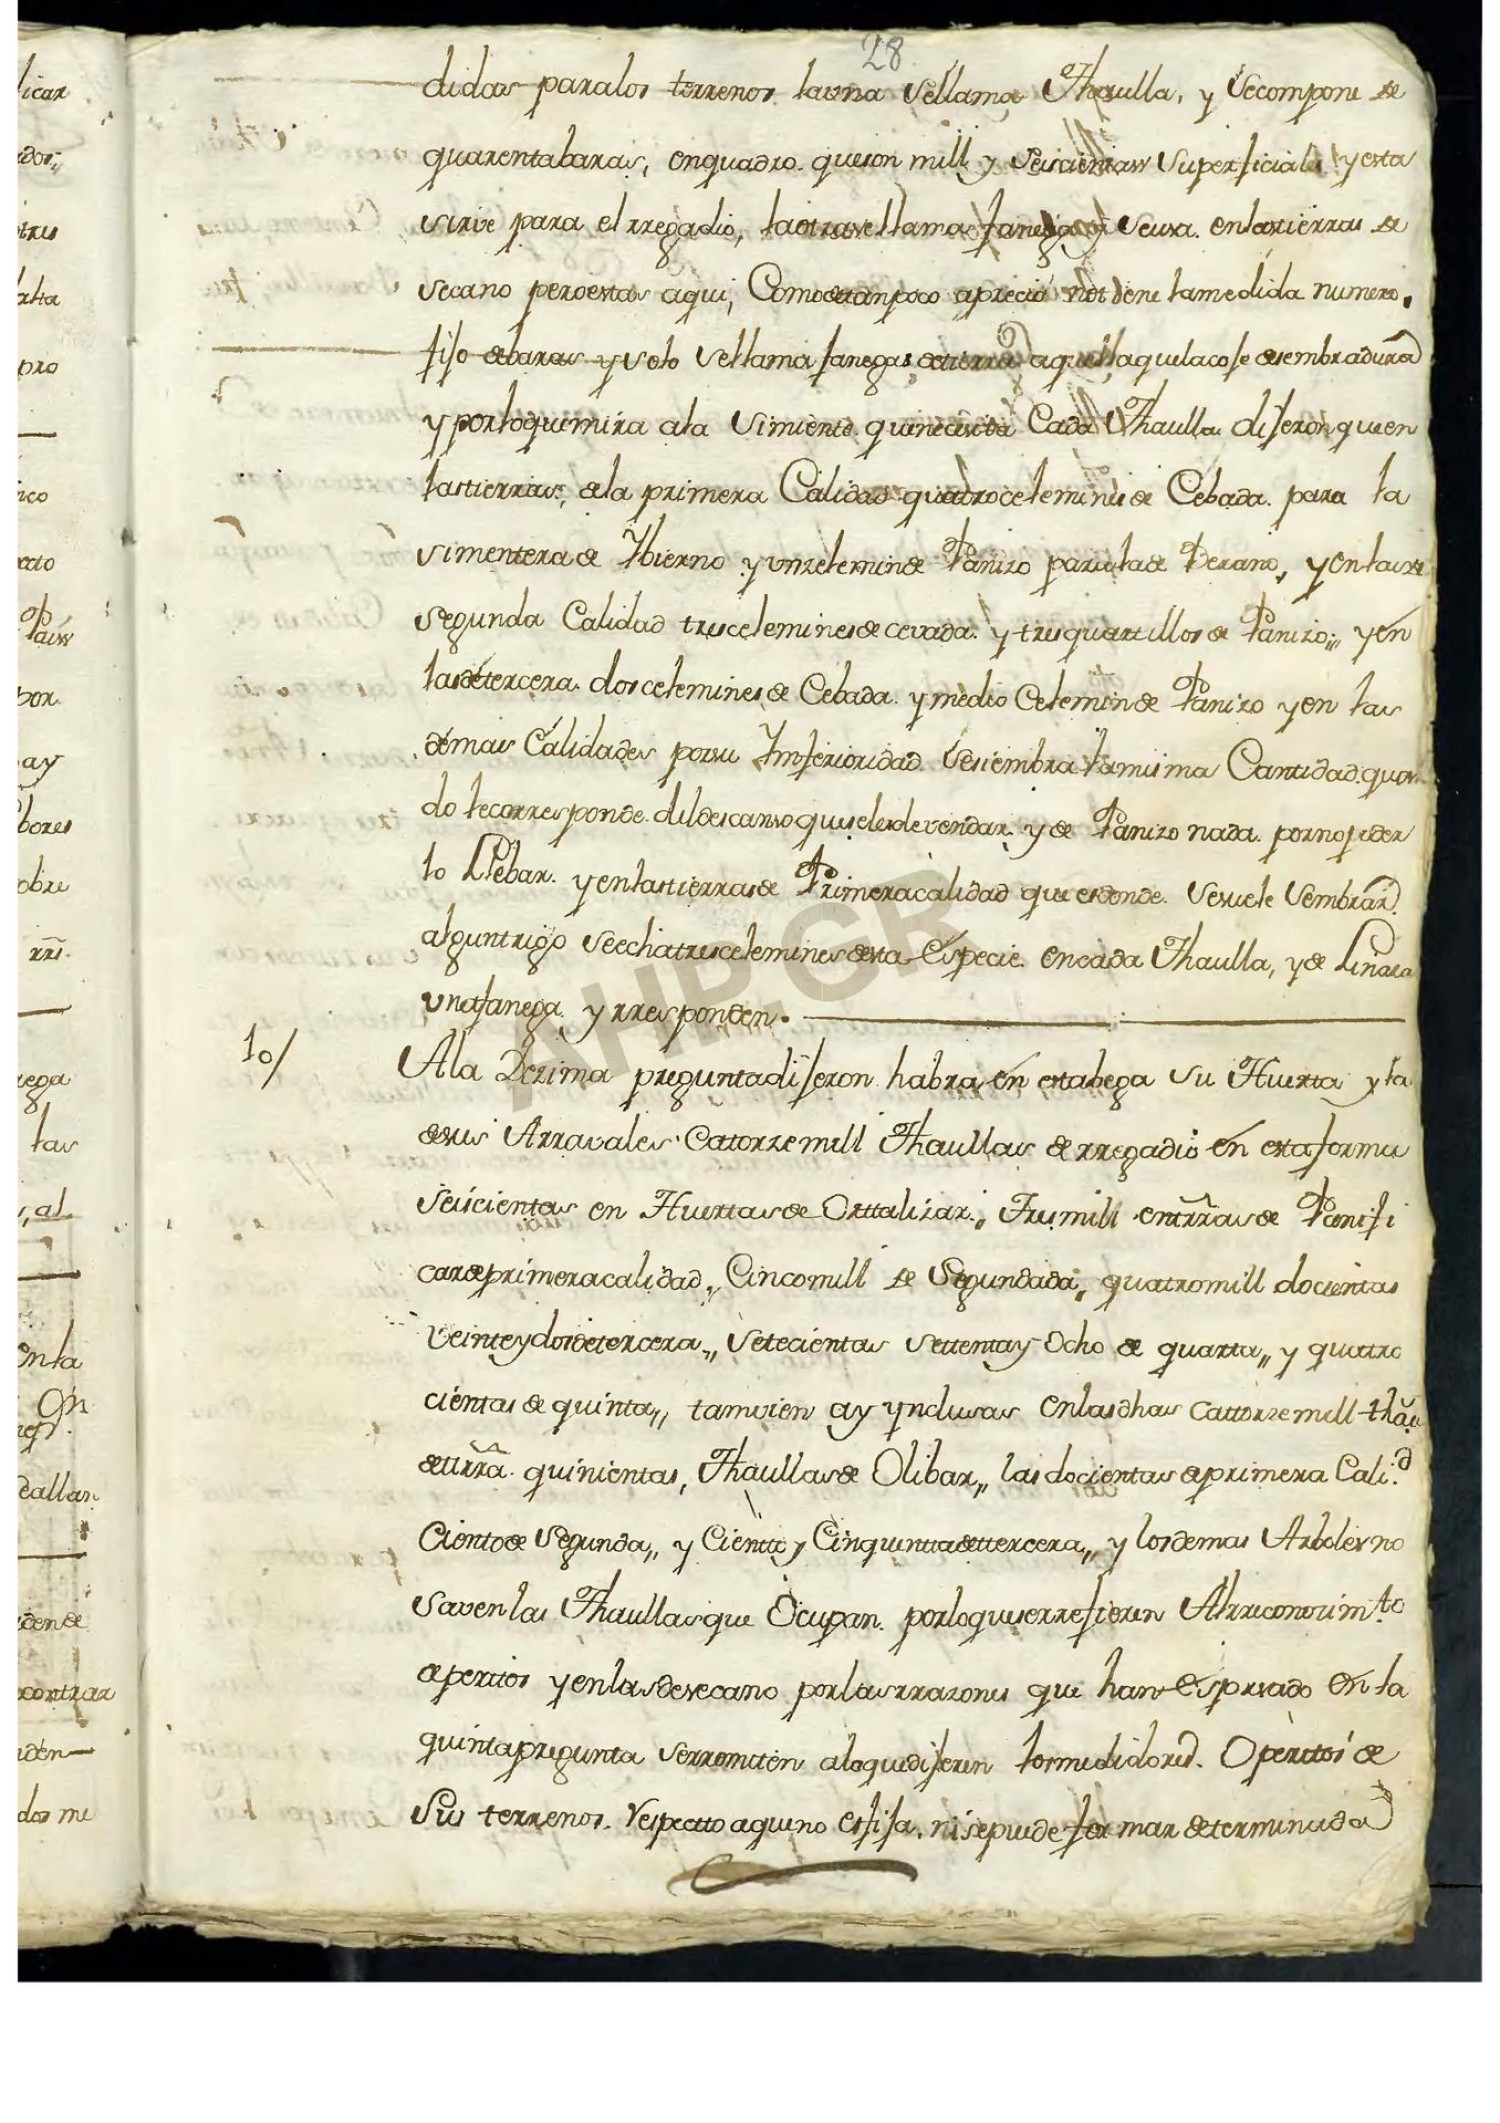 28
didas para los terrenos la una se llama Thaulla, y se compone de
quarenta baras, en quadro que son mill y seiscientas superficiales y esta
sirve para el rregadio, la otra se llama fanega y se usa en las tierras de
secano pero estas aqui, como de tan poco aprecio no tiene la medida numero
fijo de baras y solo se llama fanega de tierra aquella que la coje de sembradura
y por lo que mira a la simiente que necesita cada Thaulla dijeron que en
las tierras, de la primera Calidad quatro celemines de Cebada para la
simentera de Ybierno y un zelemin de Panizo para la de Berano, y en las de
segunda Calidad tres celemines de cevada y tres quartillos de Panizo, y en
las de tercera dos celemines de Cebada y medio Celemin de Panizo y en las
demas Calidades por su Inferioridad se siembra la misma Cantidad quan
do le corresponde del descanso que se les deven dar y de Panizo nada por no poder
lo Llebar y en las tierras de Primera calidad que es donde se suele sembrar
algun trigo se echa tres celemines desta especie en cada Thaulla, y de Linaza
una fanega y rresponden.
10/ A la Dezima pregunta dijeron habra en esta bega su Huerta y la
de sus Arravales Catorze mill Thaullas de rregadio en esta forma
seiscientas en Huertas de Orttalizar, Tres mill en trras de Panifi
car de primera calidad, Cinco mill de Segunda, quatro mill docientas
veinte y dos de tercera, setecientas settenta y Ocho de quarta, y quatro
cientas de quinta, tamvien ay ynclusas en las dhas cattorze mill thau
de tirra quinientas, Thaullas de Olibar, las docientas de primera Calid
Ciento de Segunda, y Ciento y Cinquenta de ttercera, y los demas Arboles no
saven las Thaullas que Ocupan por lo que se rrefieren Al rreconozimto
de peritos y en las de secano por las rrazones que han Espresado en la
quinta pregunta se rremiten a lo que dijeren los medidores O peritos de
sus terrenos. Respecto a que no es fija, ni se puede formar determinada